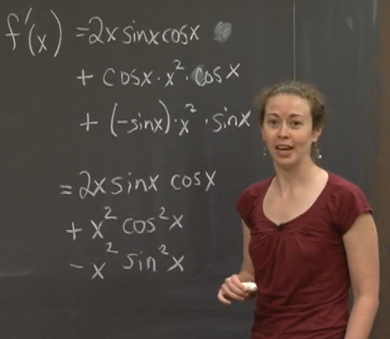 f'(x) = 2x sinx cosx
+ cosx · x² · cosx
+ (-sinx) · x² · sinx
= 2x sinx cosx
+ x² cos²x
- x² sin²x